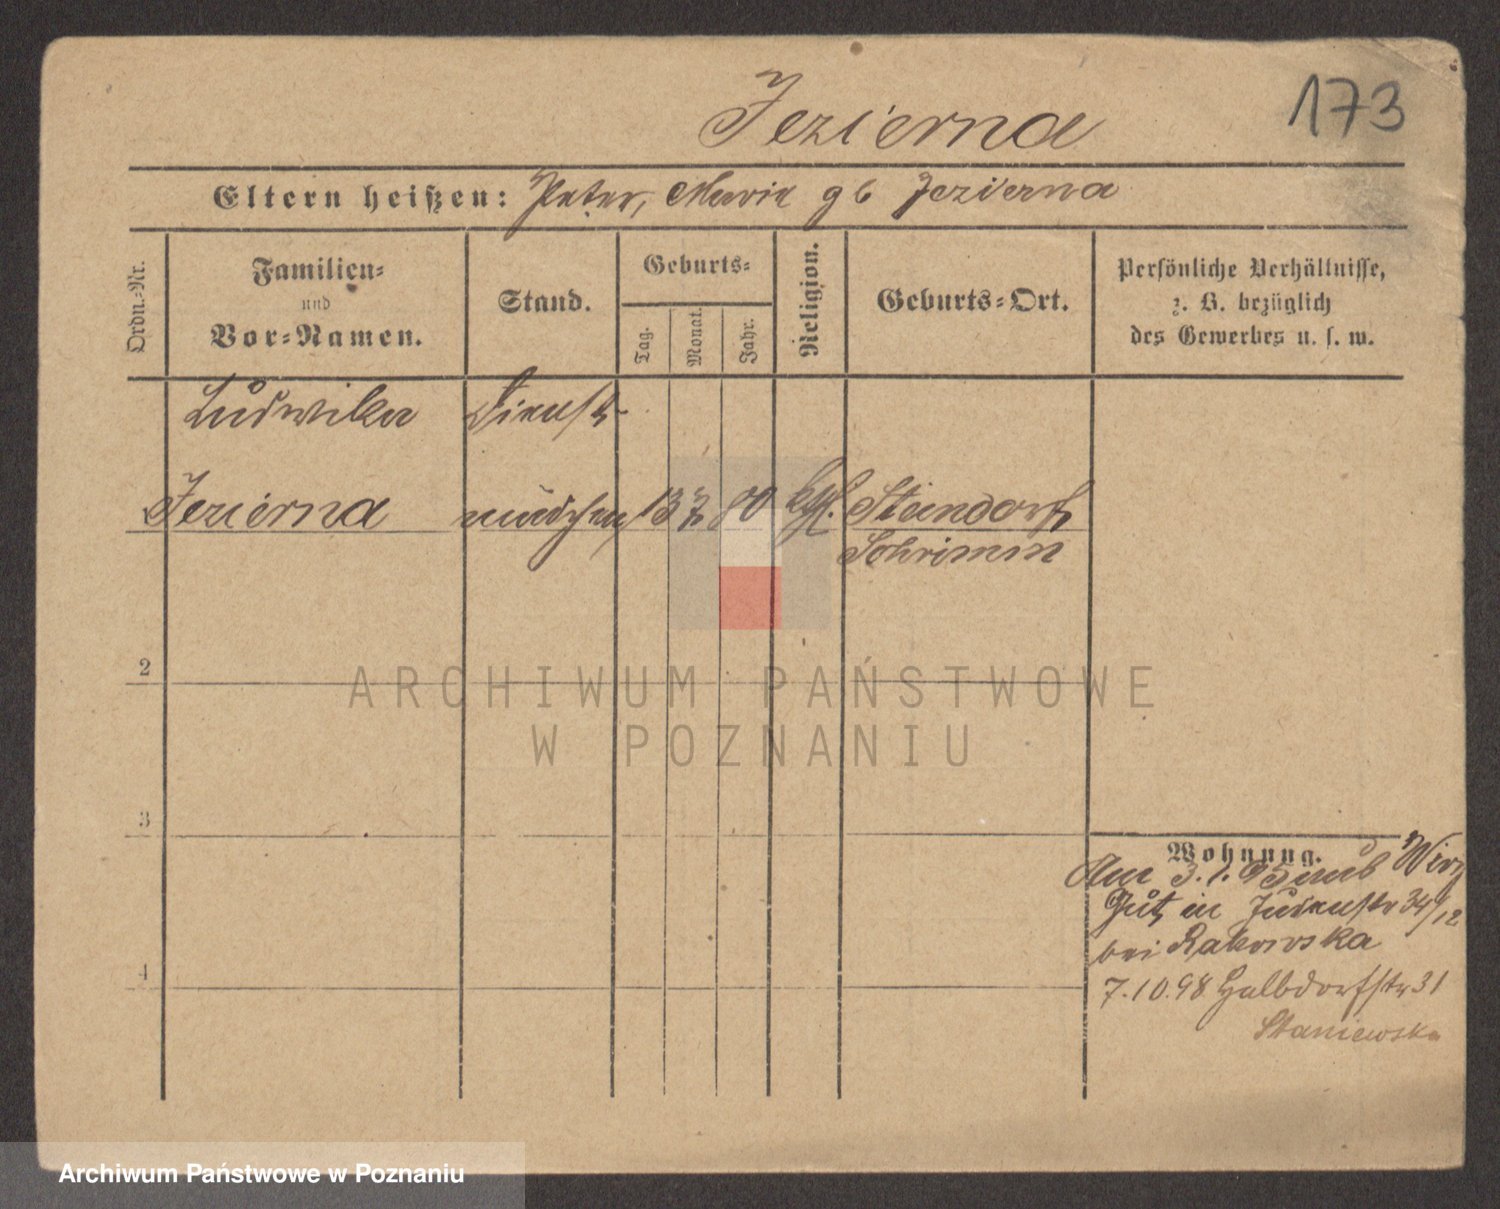 173
Jezierna
Eltern heißen: Peter, Marie gb Jezierna
Ordn.-Nr.
Familien-
und
Vor-Namen.
Stand.
Geburts-
Tag.
Monat.
Jahr.
Religion.
Geburts-Ort.
Persönliche Verhältnisse,
z. B. bezüglich
des Gewerbes u. s. w.
Ludwika Dienst-
Jezierna mädchen 13 7 80 kth. Steindorf
Schrimm
2
3
4
Wohnung.
Am 3.1. 95
in Judenstr 34/12
bei Rakowska
7.10.98 Halbdorfstr 31
Staniewska
ARCHIWUM PAŃSTWOWE
W POZNANIU
Archiwum Państwowe w Poznaniu